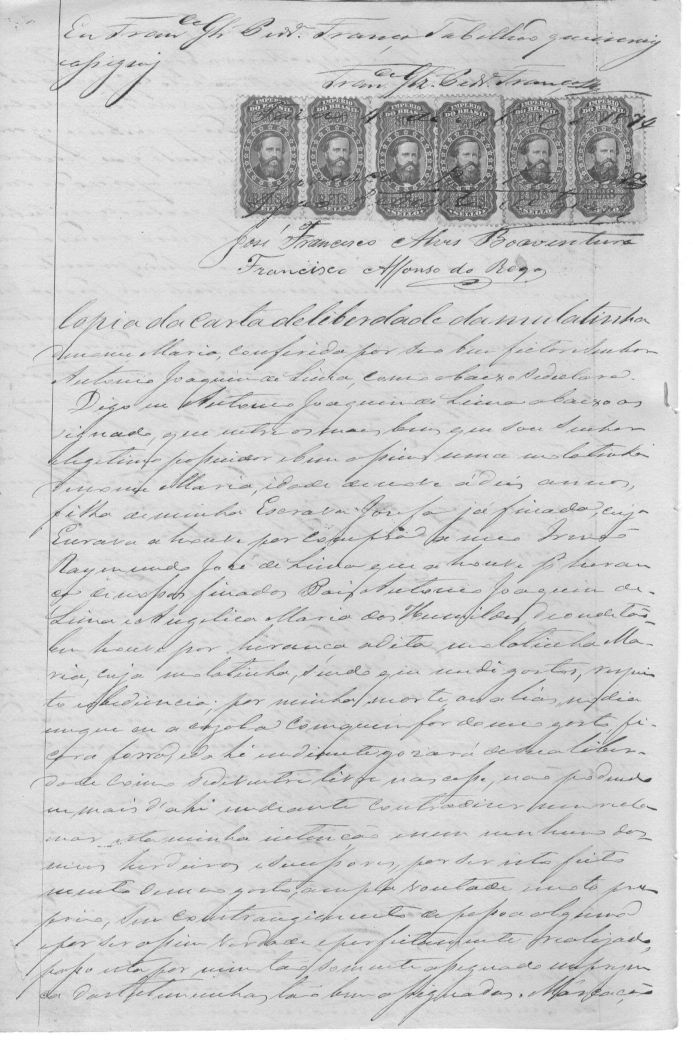 Eu Fran.co Gil Per.a França Tabellião que
assignei
Fran.co
IMPERIO DO BRASIL IMPERIO DO BRASIL IMPERIO DO BRASIL IMPERIO DO BRASIL IMPERIO DO BRASIL IMPERIO DO BRASIL
José Francisco Alves Boaventura
Francisco Affonso do Rego
Copia da carta de liberdade da mulatinha
de nome Maria, conferida por seo bem feitor Senhor
Antonio Joaquim de Lima, como abaixo se declara.
Digo eu Antonio Joaquim de Lima abaixo as
signado, que entre os mais bens que sou Senhor
e legitimo possuidor e bem assim uma mulatinha
de nome Maria, idade de nove á dés annos,
filha de minha Escrava Josefa já finada, cuja
Escrava a houve por compra a meo Irmão
Raymundo José de Lima que a houve p.r heran
ça de nossos finados Pais Antonio Joaquim de
Lima e Angelica Maria dos Humildes, d'onde tão
bem houve por herança a dita mulatinha Ma
ria, cuja mulatinha, sendo que me dê gostos, respei
to e obidiencia: por minha morte, ou aliás, no dia
em que eu a com quem for do meo gosto fi
cará forra, e d'ahi em diante gozará de sua liber
dade como se de ventre livre nascesse, não podendo
eu mais d'ahi em diante contradizer nem recla
mar esta minha intenção e nem nenhum dos
meus herdeiros e sucessores, por ser isto feito
muito de meo gosto, ampla vontade e moto pro
prio, sem constrangimento de pessoa alguma
e por ser assim verdade e perfeitamente realizado,
passo esta por mim tão somente assignado em presen
ça das testemunhas tão bem assignadas.